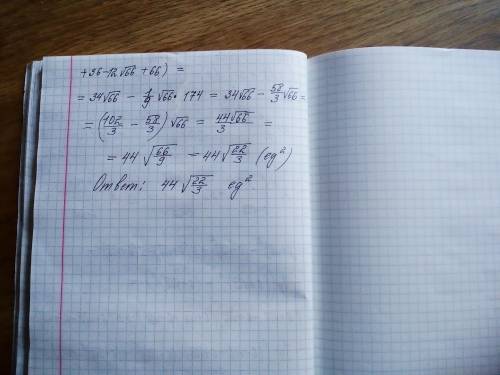 +36-12√66 +66) =
= 34√66 - 1/9 √66 · 174 = 34√66 - 58/3 √66 =
= (102/3 - 58/3) √66 = 44√66/3 =
= 44 √66/9 = 44√22/3 (ед²)
Ответ: 44 √22/3 ед²